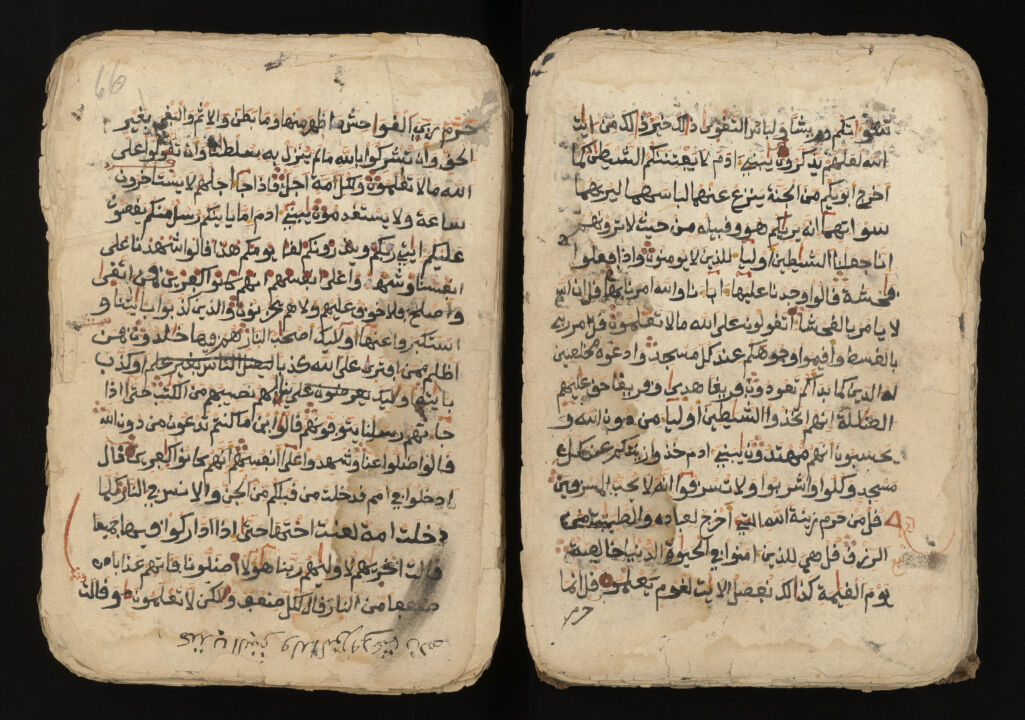 سوءاتكم وريشا ولباس التقوى ذالك خير ذالك من ايت
الله لعلهم يذكرون يبني ادم لا يفتننكم الشيطن كما
اخرج ابويكم من الجنة ينزع عنهما لباسهما ليريهما
سواتهما انه يريكم هو وقبيله من حيث لا ترونهم
انا جعلنا الشيطين اوليا للذين لا يومنون واذا فعلوا
فحشة قالوا وجدنا عليها ابانا والله امرنا بها قل ان الله
لا يامر بالفحشا اتقولون على الله مالا تعلمون قل امر ربي
بالقسط واقيموا وجوهكم عند كل مسجد وادعوه مخلصين
له الدين كما بداكم تعودون فريقا هدى وفريقا حق عليهم
الضللة انهم اتخذوا الشيطين اوليا من دون الله و
يحسبون انهم مهتدون يبني ادم خذوا زينتكم عند كل
مسجد وكلوا واشربوا ولا تسرفوا انه لا يحب المسرفين
قل من حرم زينة الله التي اخرج لعباده والطيبت من
الرزق قل هي للذين امنوا في الحيوة الدنيا خالصة
يوم القيمة كذالك نفصل الايت لقوم يعلمون قل انما
حرم
66
حرم ربي الفواحش ما ظهر منها وما بطن والاثم والبغي بغير
الحق وان تشركوا بالله ما لم ينزل به سلطنا وان تقولوا على
الله مالا تعلمون ولكل امة اجل فاذا جا اجلهم لا يستاخرون
ساعة ولا يستقدمون يبني ادم اما ياتينكم رسل منكم يقصون
عليكم ايتي ربكم وينذرونكم لقا يومكم هذا قالوا شهدنا على
انفسنا وشهدوا على انفسهم انهم كانوا كفرين فمن اتقى
واصلح فلا خوف عليهم ولا هم يحزنون والذين كذبوا بايتنا و
استكبروا عنها اولئك اصحب النار هم فيها خلدون فمن
اظلم ممن افترى على الله كذبا ليضل الناس بغير علم او كذب
بايته اولئك يعرضون على ربهم ينالهم نصيبهم من الكتب حتى اذا
جاتهم رسلنا يتوفونهم قالوا اين ما كنتم تدعون من دون الله
قالوا ضلوا عنا وشهدوا على انفسهم انهم كانوا كفرين قال
ادخلوا في امم قد خلت من قبلكم من الجن والانس في النار كلما
دخلت امة لعنت اختها حتى اذا اداركوا فيها جميعا
قالت اخريهم لاوليهم ربنا هولا اضلونا فاتهم عذابا
ضعفا من النار قال لكل ضعف ولكن لا تعلمون وقالت